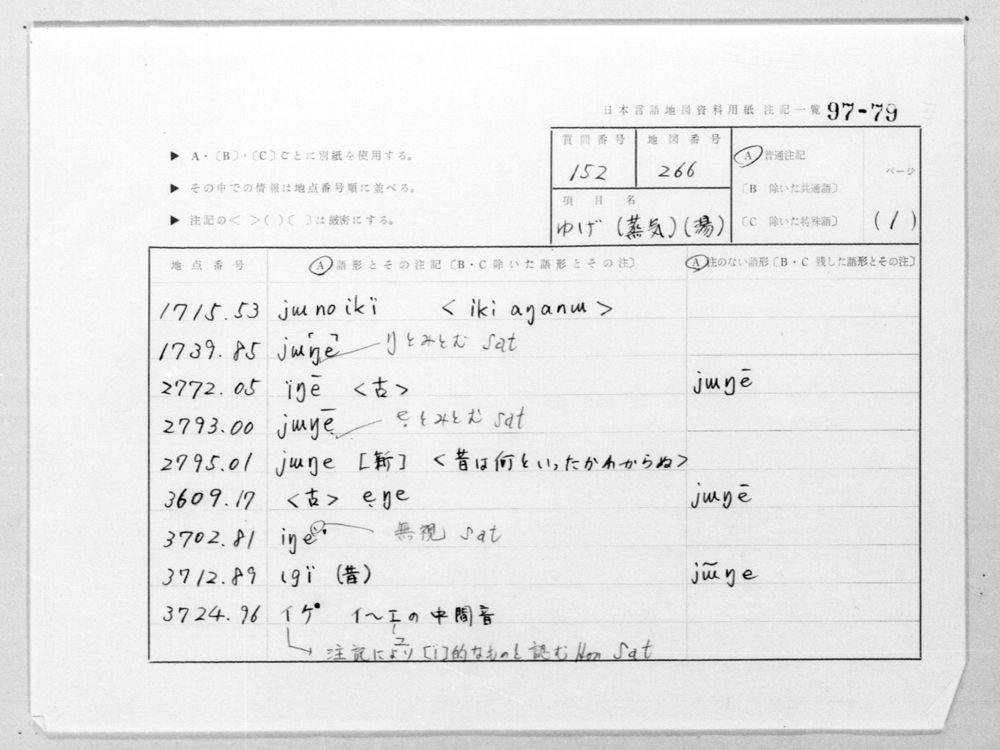 日本言語地図資料用紙 注記一覧 97-79
▶ A・〔B〕・〔C〕ごとに別紙を使用する。
▶ その中での情報は地点番号順に並べる。
▶ 注記の< >( )〔 〕は厳密にする。
質問番号 地図番号
152 266
項目名
ゆげ (蒸気)(湯)
Ⓐ 普通注記
〔B 除いた共通語〕
〔C 除いた特殊語〕
ページ
(1)
地点番号 Ⓐ 語形とその注記〔B・C 除いた語形とその注〕 Ⓐ 注のない語形〔B・C 残した語形とその注〕
1715.53 jɯnoikï < iki aŋanɯ >
1739.85 jɯ「ŋe」 ŋとみとむ sat
2772.05 ïŋē <古> jɯŋē
2793.00 jɯŋē̞ e̞とみとむ sat
2795.01 jɯŋe [新] <昔は何といったかわからぬ>
3609.17 <古> e̞ŋe jɯŋē
3702.81 iŋe 無視 sat
3712.89 ɩgï (昔) jɯ̃ŋe
3724.96 イケ゚ イ～エの中間音
注記により[i]的なものと認む Hon Sat